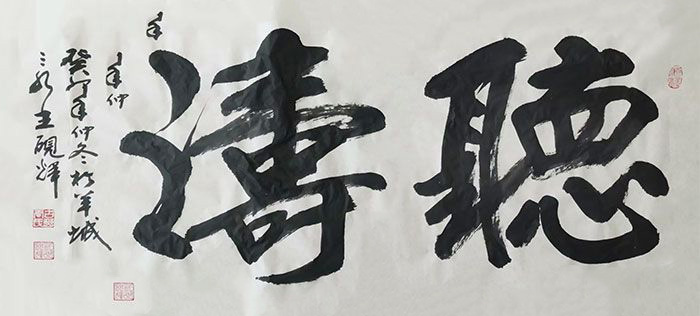 聽濤
年
年仲
癸卯年仲冬於羊城
三水王硯輝